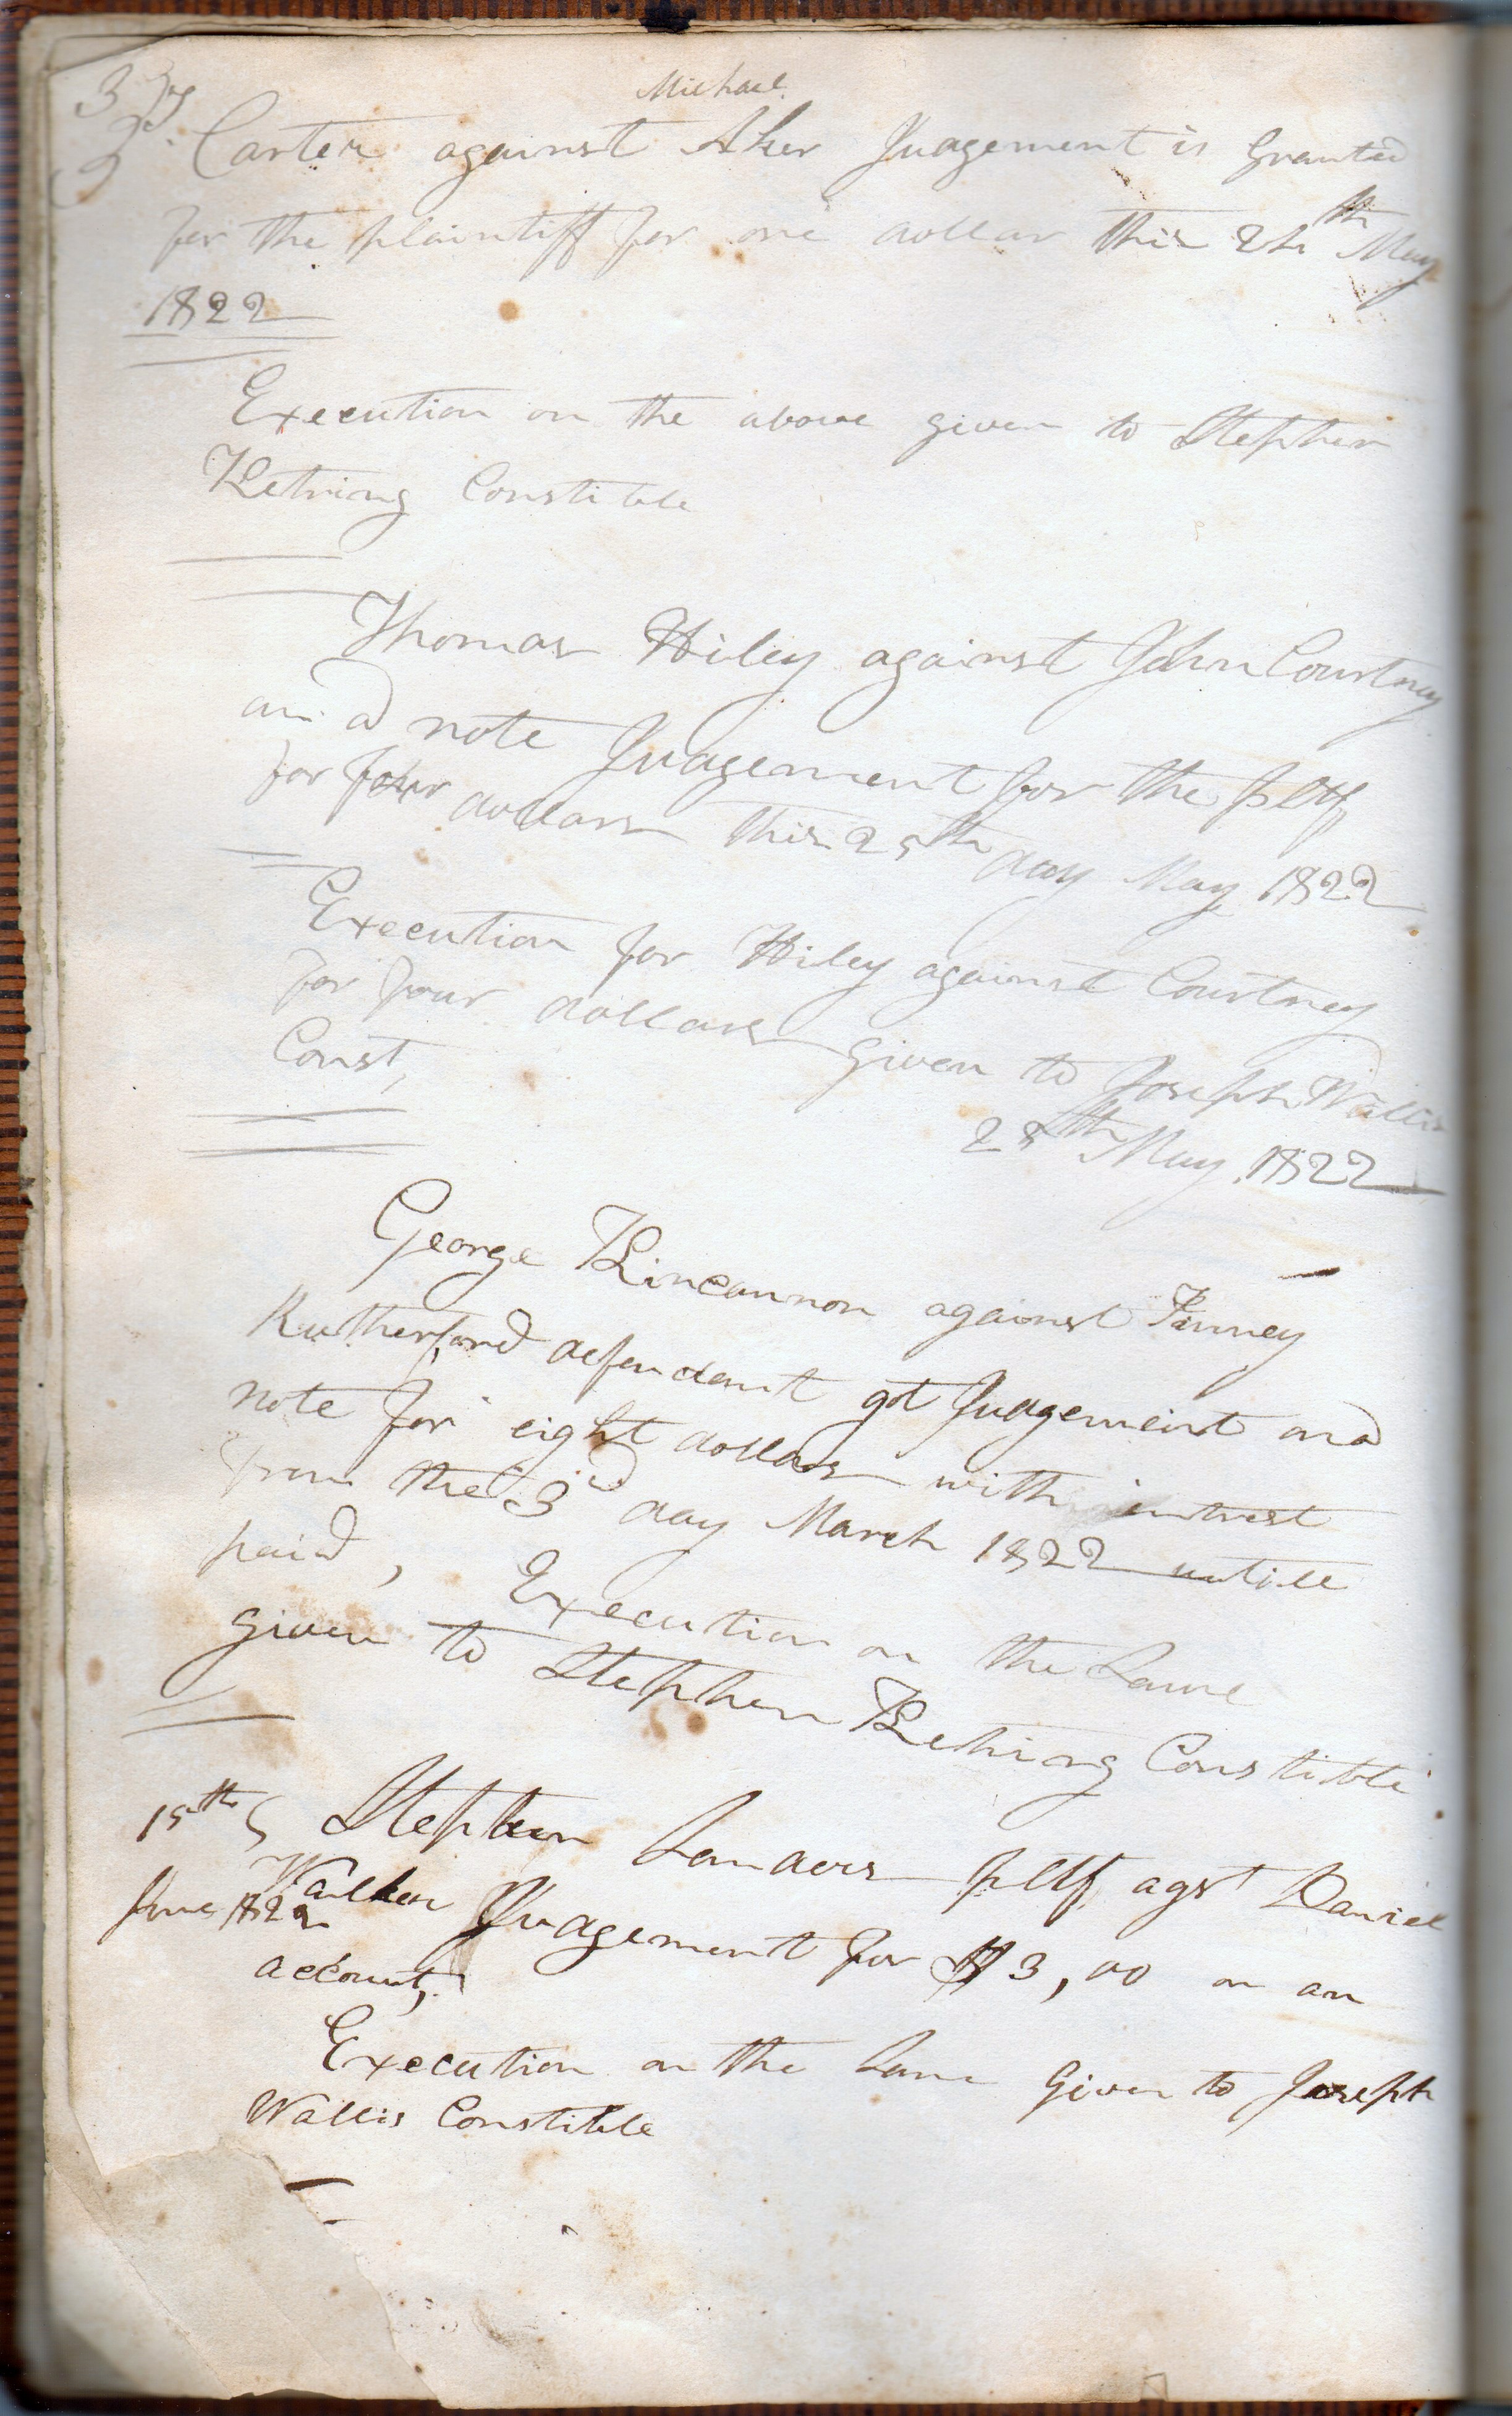 Michael
Carter against Aker Judgement is Granted
for the plaintiff for one dollar this 24th May
1822
Execution on the above given to Stephen
Ketring Constible
Thomas Hiley against John Courtney
and note Judgement for the pltf
for four dollars this 25th day May 1822
Execution for Hiley against Courtney
for four dollars given to Joseph Wallis
Const,
28th May 1822
George Kincannon against
Rutherford defendant got Judgement and
note for eight dollars with intrest
from the 3d day March 1822 untill
paid, Execution on the Same
given to Stephen Ketring Constible
15th Stephen Sanders pltf agst Daniel
June 1822 Walker Judgement for $3,00 on an
account,
Execution on the Same Given to Joseph
Wallis Constible